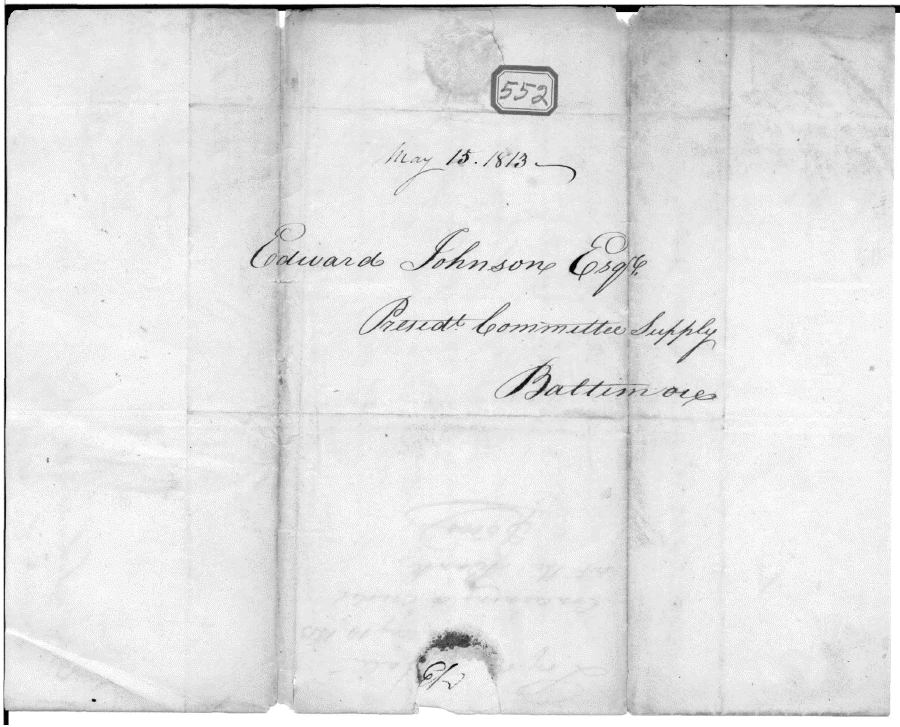 552
May 15. 1813
Edward Johnson Esqr.
Presidt Committee Supply
Baltimore